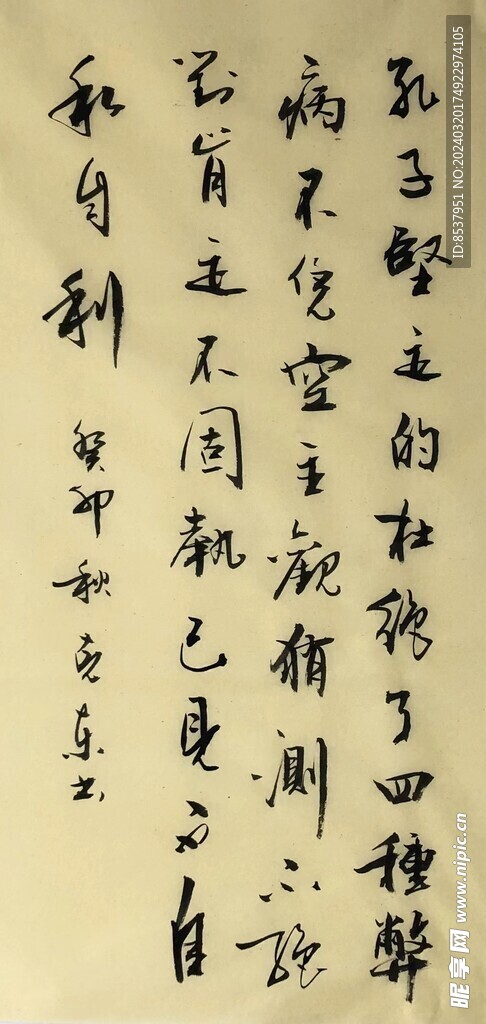 孔子堅定的杜絕了四種弊
病不凭空主觀猜測不絕
對肯定不固執己見不自
私自利
癸卯秋克东书
ID:8537951 NO:20240320174922974105
昵享网 www.nipic.cn